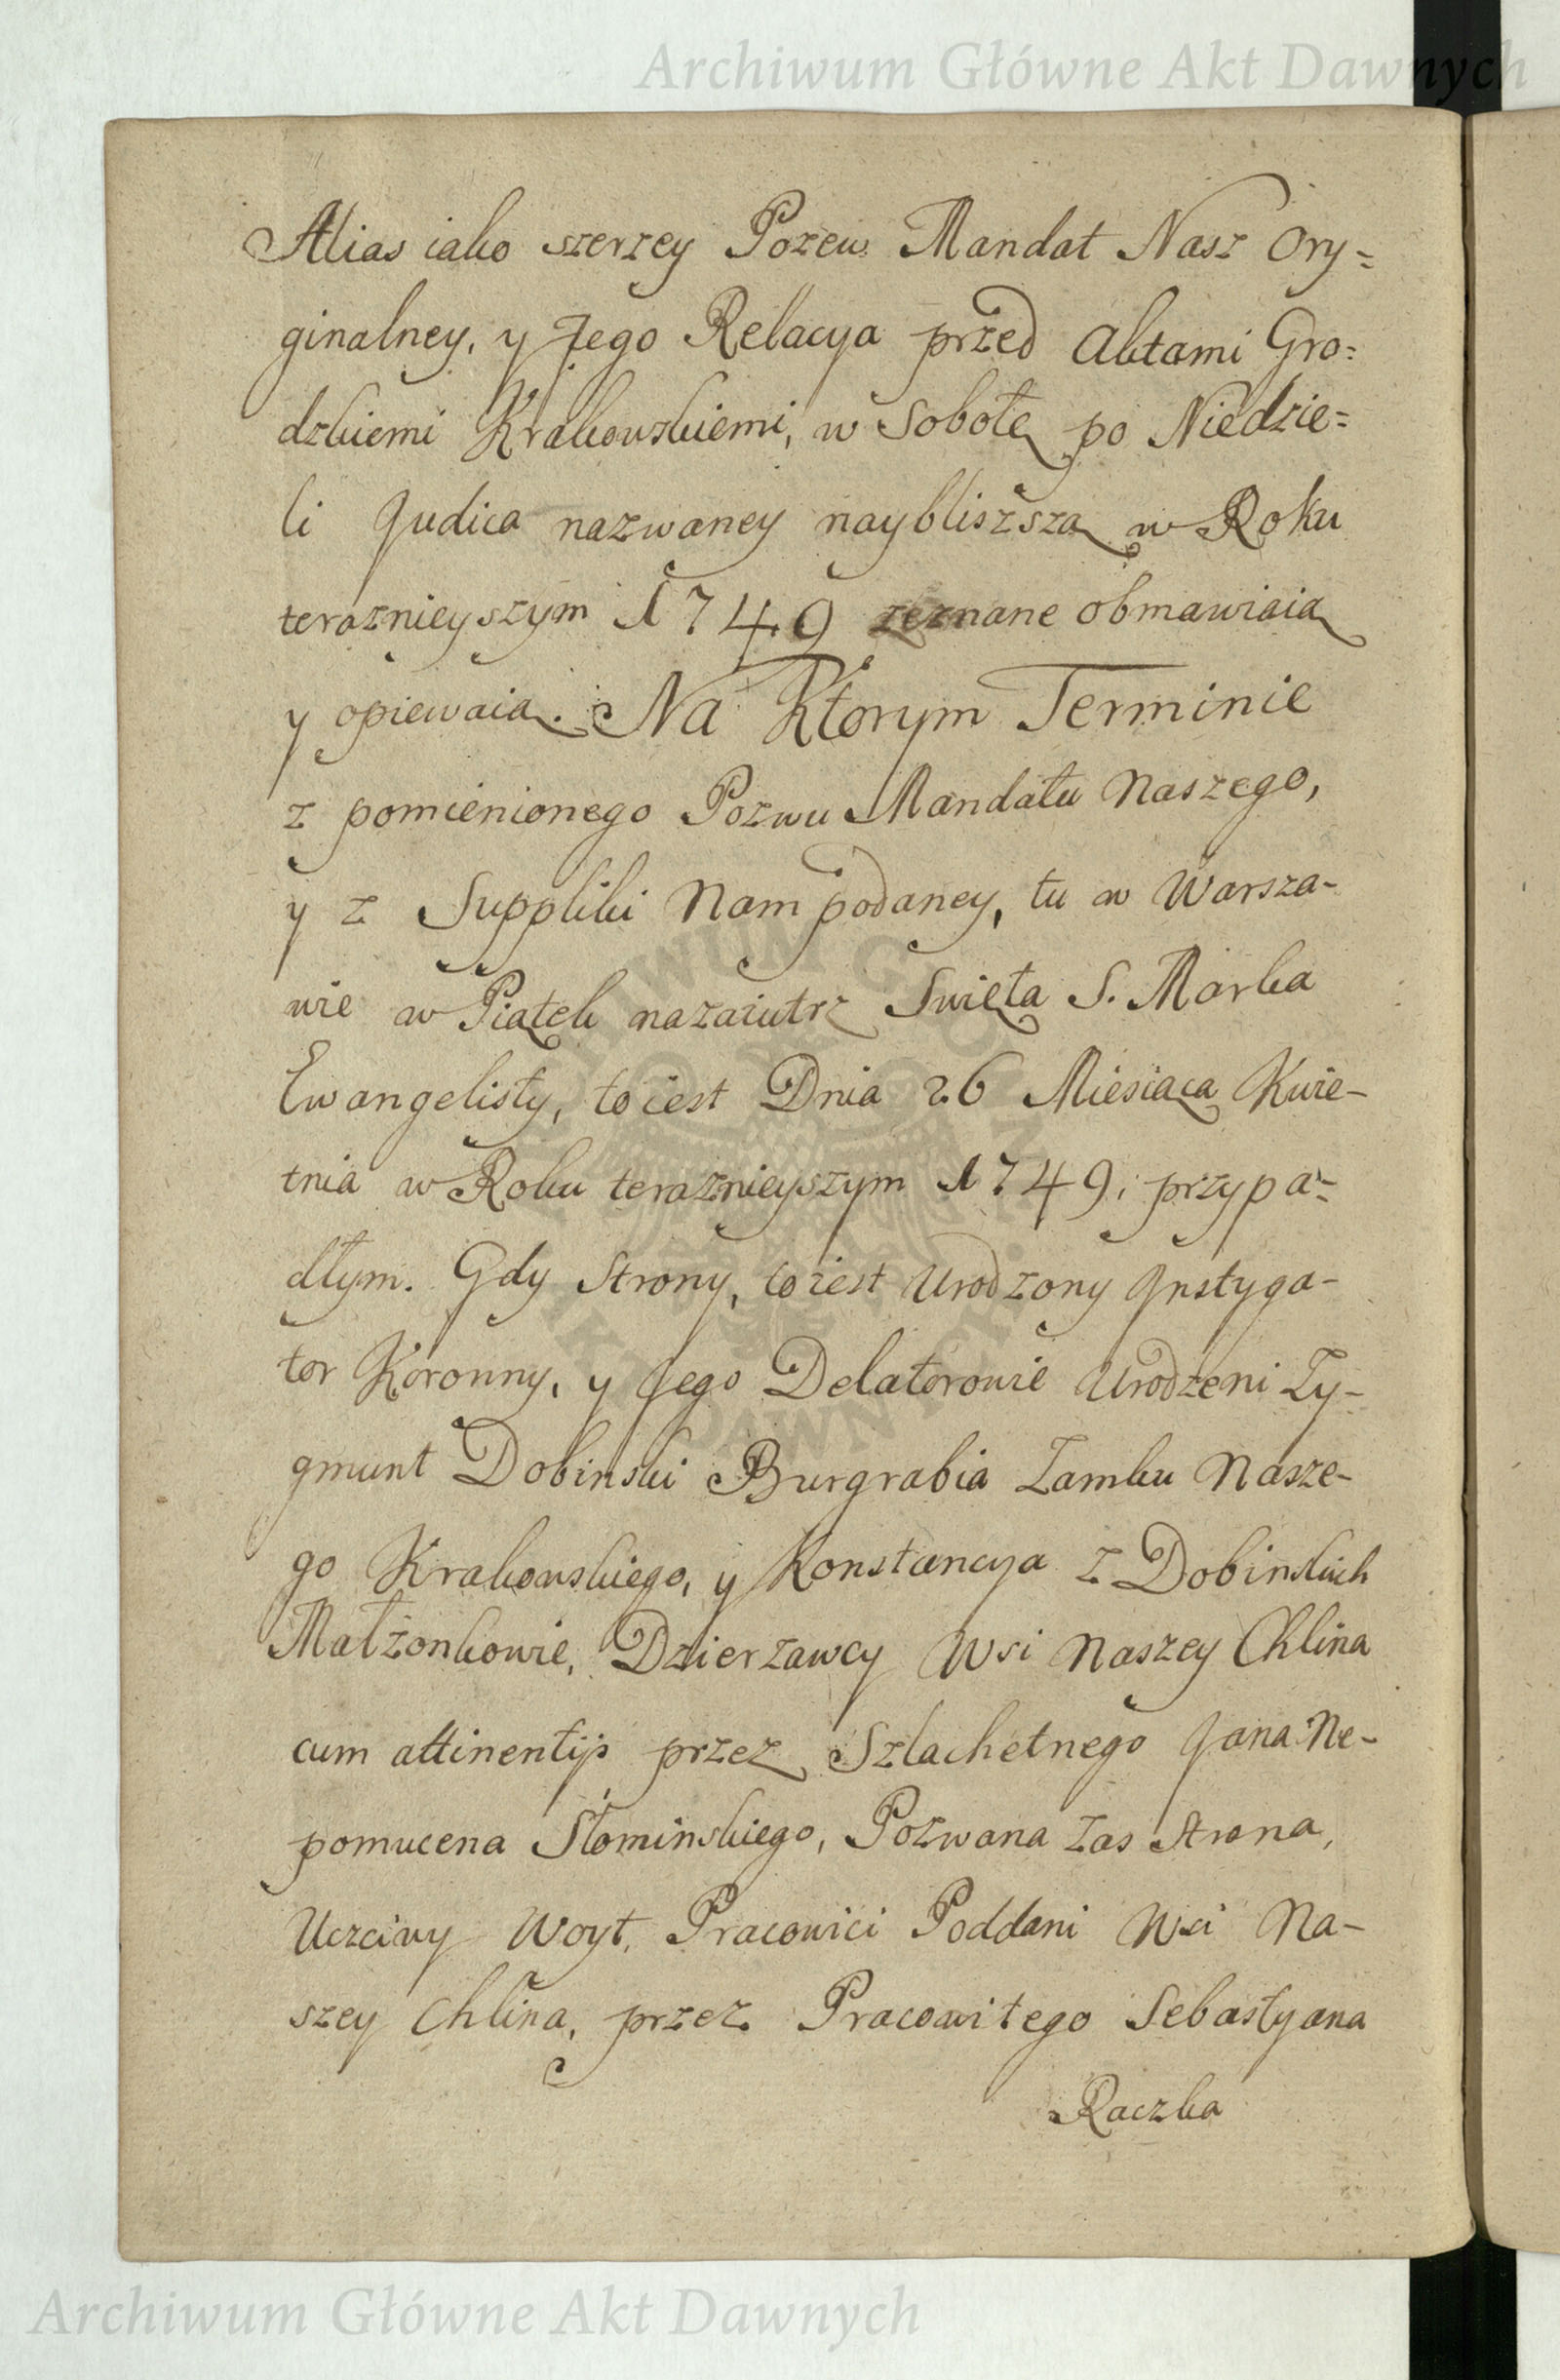 Archiwum Główne Akt Dawnych
Alias iako szerzey Pozew Mandat Nasz Ory=
ginalney, y Jego Relacya przed Aktami Gro=
dzkiemi Krakowskiemi, w Sobotę po Niedzie=
li Judica nazwaney naybliszszą w Roku
teraznieyszym 1749 zeznane obmawiaią
y opiewaią. Na Ktorym Terminie
z pomienionego Pozwu Mandatu Naszego,
y z Suppliki Nam podaney, tu w Warsza-
wie w Piątek nazaiutrz Swięta S. Marka
Ewangelisty, to iest Dnia 26 Miesiąca Kwie-
tnia w Roku teraznieyszym 1749, przypa-
dłym. Gdy Strony, to iest Urodzony Instyga-
tor Koronny, y Jego Delatorowie Urodzeni Zy-
gmunt Dobinski Burgrabia Zamku Nasze-
go Krakowskiego, y Konstancya z Dobinskich
Małżonkowie, Dzierzawcy Wsi Naszey Chlina
cum attinentijs przez Szlachetnego Jana Ne-
pomucena Słominskiego, Pozwana zas Strona,
Uczciwy Woyt, Pracowici Poddani Wsi Na-
szey Chlina, przez Pracowitego Sebastyana
Raczka
Archiwum Główne Akt Dawnych